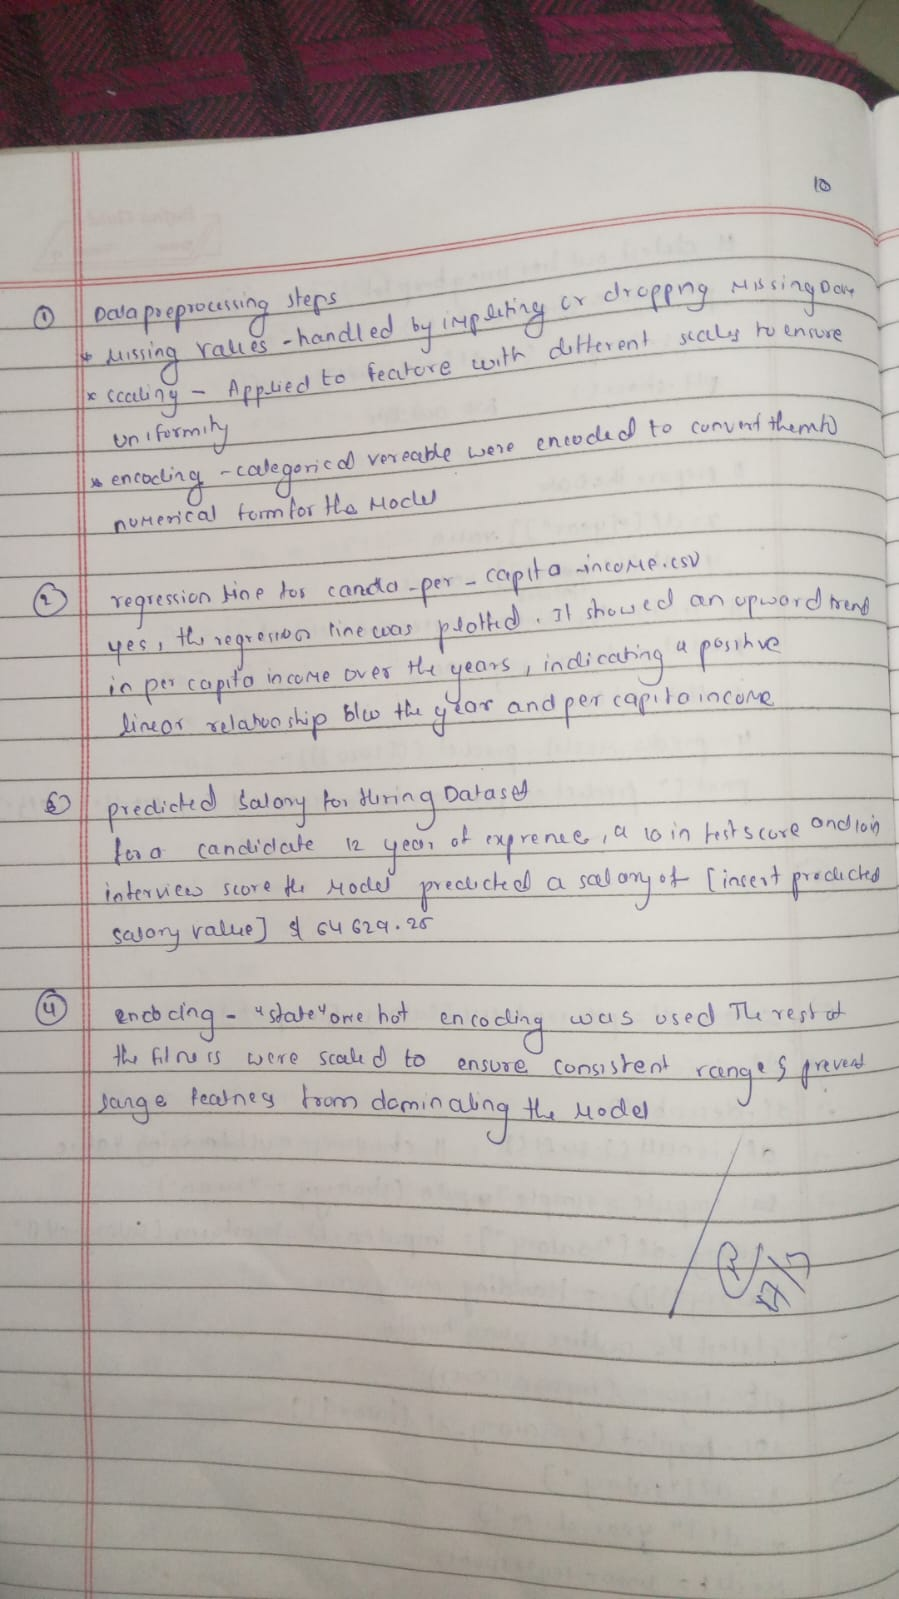 10
① Data preprocessing steps
* Missing values - handled by imputing or dropping Missing Data
* scaling - Applied to feature with different scales to ensure
uniformity
* encoding - categorical vereable were encoded to convert them to
numerical form for the Model
② regression line for canda-per-capita-income.csv
yes, the regression line was plotted. It showed an upward trend
in per capita income over the years, indicating a positive
linear relationship b/w the year and per capita income
predicted Salary for Hiring Dataset
for a candidate 12 year of exprence, a 10 in test score and 10 in
interview score the Model predicted a salary of [insert predicted
salary value] $ 64629.25
④ encoding - "state" one hot encoding was used The rest of
the were scaled to ensure consistent range & prevent
large from dominating the Model